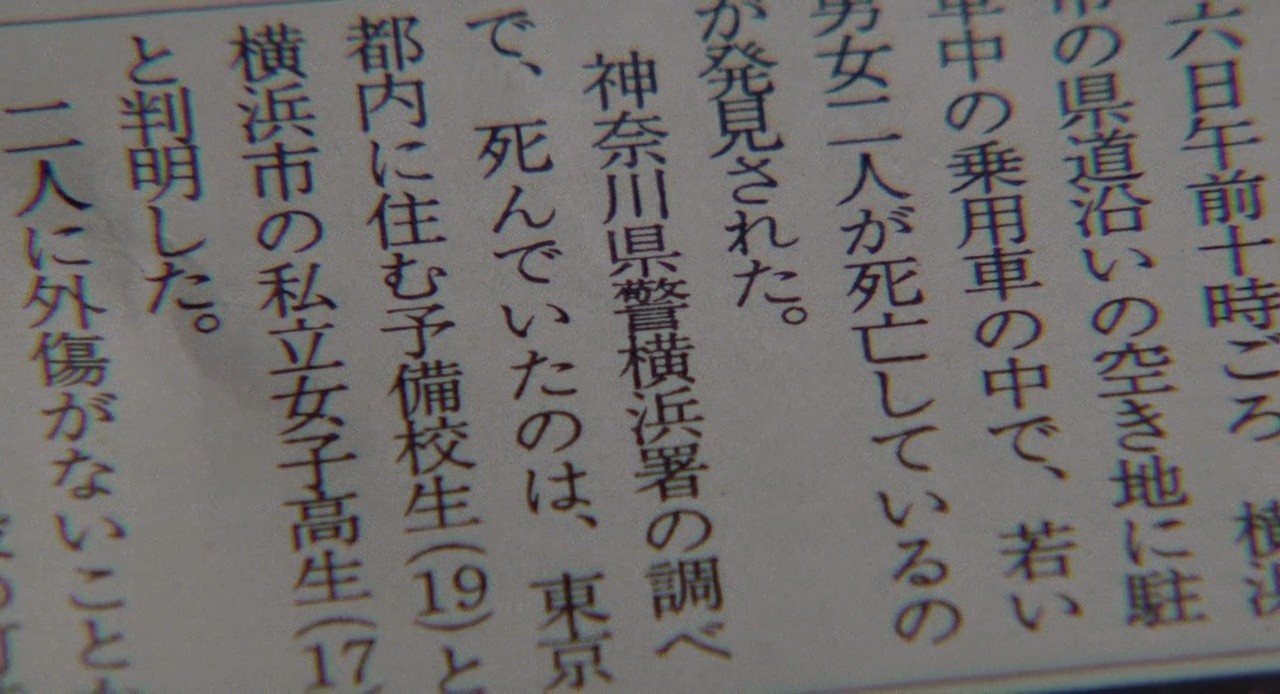 六日午前十時ごろ 横浜
市の県道沿いの空き地に駐
車中の乗用車の中で、若い
男女二人が死亡しているの
が発見された。
神奈川県警横浜署の調べ
で、死んでいたのは、東京
都内に住む予備校生(19)と
横浜市の私立女子高生(17
と判明した。
二人に外傷がないこと